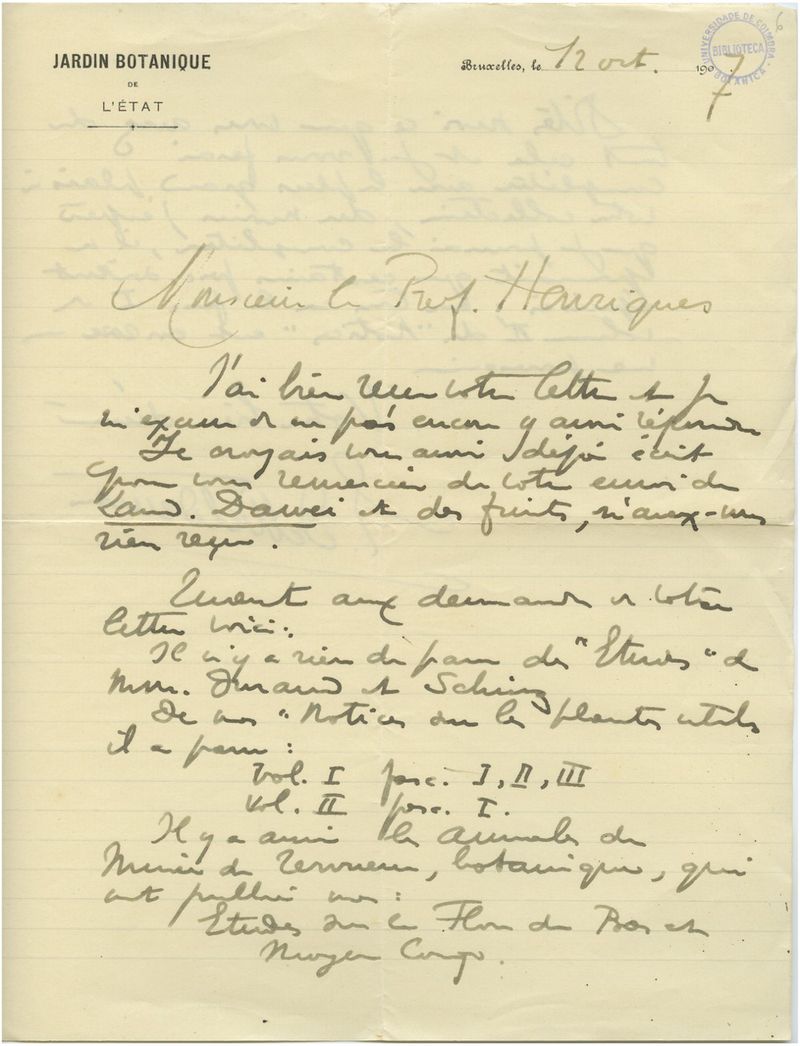 JARDIN BOTANIQUE
DE
L'ÉTAT
Bruxelles, le 12 oct. 1907
UNIVERSIDADE DE COIMBRA
BIBLIOTECA
BOTANICA
6
Monsieur le Prof. Henriques
J'ai bien reçu votre lettre et je
m'excuse de ne pas encore y avoir répondu
Je croyais vous avoir déjà écrit
pour vous remercier de votre envoi de
Land. Dawei et des fruits, n'avez-vous
rien reçu.
Quant aux demandes de votre
lettre voici:
Il n'y a rien de paru des "Etudes" de
Mm. Durand et Schinz
De mes "Notices sur les plantes utiles
il a paru:
Vol. I fasc. I, II, III
Vol. II fasc. I.
Il y a aussi les Annales du
Musée de Tervueren, botanique, qui
ont publié mes:
Etudes sur la Flore du Bas et
Moyen Congo.